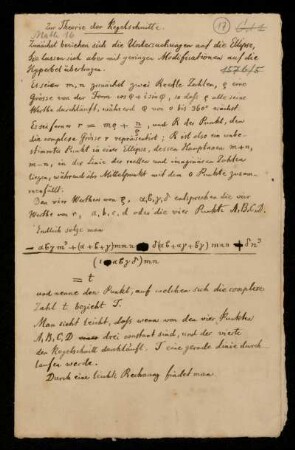 Zur Theorie der Kegelschnitte
Math 16
17
Zunächst beziehen sich die Untersuchungen auf die Ellipse,
sie lassen sich aber mit geringen Modificationen auf die
Hyperbel übertragen.
Es seien m, n zunächst zwei Reelle Zahlen, ρ eine
Grösse von der Form cos φ + i sin φ, so daß ρ alle seine
Werthe durchläuft, während φ von 0 bis 360° wächst.
Es sei ferner r = mρ + n/ρ, und R der Punkt, den
die complexe Grösse r repräsentirt; R ist also ein unbe-
stimmter Punkt in einer Ellipse, deren Hauptaxen m+n,
m−n, in die Linie der reellen und imaginären Zahlen
liegen, während ihr Mittelpunkt mit dem 0 Punkte zusam-
menfällt.
Den vier Werthen von ρ, α, β, γ, δ entsprechen die vier
Werthe von r, a, b, c, d oder die vier Punkte A, B, C, D.
Endlich solge man
= t
und nenne den Punkt, auf welchen sich die complexe
Zahl t bezieht T.
Man sieht leicht, daß wenn von den vier Punkten
A, B, C, D drei constant sind, und der vierte
den Kegelschnitt durchläuft, T eine gerade Linie durch-
laufen werde.
Durch eine leichte Rechnung findet man